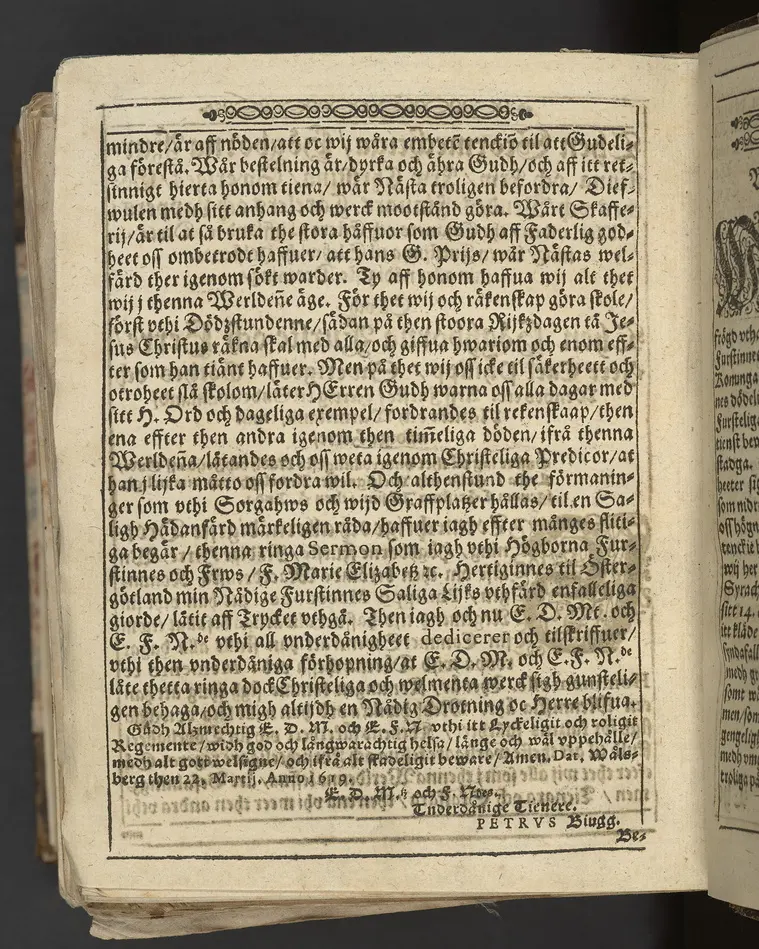 mindre/är aff nöden/att oc wij wåra embetē tenckiō til att Gudeli-
ga förestå. Wår bestelning är/dyrka och ähra Gudh/och aff itt ret-
sinnigt hierta honom tiena/ wår Nästa troligen befordra/ Dief-
wulen medh sitt anhang och werck mootstånd göra. Wårt Skaffe-
rij/är til at så bruka the stora håffuor som Gudh aff Faderlig god-
heet oss ombetrodt haffuer/ att hans G. Prijs/ wår Nästas wel-
färd ther igenom sökt warder. Ty aff honom haffua wij alt thet
wij j thenna Werldeñe äge. För thet wij och räkenskap göra skole/
först vthi Dödzstundenne/sådan på then stoora Rijkzdagen tå Je-
sus Christus räkna skal med alla/och giffua hwariom och enom eff-
ter som han tiänt haffuer. Men på thet wij oss icke til säkerheett och
otroheet slå skolom/låter HErren Gudh warna oss alla dagar med
sitt H. Ord och dageliga exempel/ fordrandes til rekenskaap/then
ena effter then andra igenom then tim̃eliga döden/ifrå thenna
Werldeña/låtandes och oss weta igenom Christeliga Predicor/at
han j lijka måtto oss fordra wil. Och althenstund the förmanin-
ger som vthi Sorgahws och wijd Graffplatzer hållas/ til en Sa-
ligh Hådanfård märkeligen råda/haffuer iagh effter månges fliti-
ga begär / thenna ringa Sermon som iagh vthi Högborna Fur-
stinnes och Frws / F. Marie Elizabetz ꝛc. Hertiginnes til Öster-
götland min Nådige Furstinnes Saliga Lijks vthfärd enfalleliga
giorde/ låtit aff Trycket vthgå. Then iagh och nu E. D. Mt. och
E. F. N.de vthi all vnderdånigheet dedicerer och tilskriffuer/
vthi then vnderdåniga förhopning/at E. D. M. och E. F. N.de
låte thetta ringa dock Christeliga och welmenta werck sigh gunsteli-
gen behaga/och migh altijdh en Nådig Drotning oc Herre blifua.
Gudh Alzmechtig E. D. M. och E. F. N vthi itt Lyckeligit och roligit
Regemente/widh god och långwarachtig helsa/ länge och wäl vppehålle/
medh alt gott welsigne/ och ifrå alt skadeligit beware/ Amen. Dat. Wåls-
berg then 22. Martij. Anno 1619.
E. D. M.tz och F. N:des.
Tnderdånige Tienere.
PETRVS Biugg.
Be-